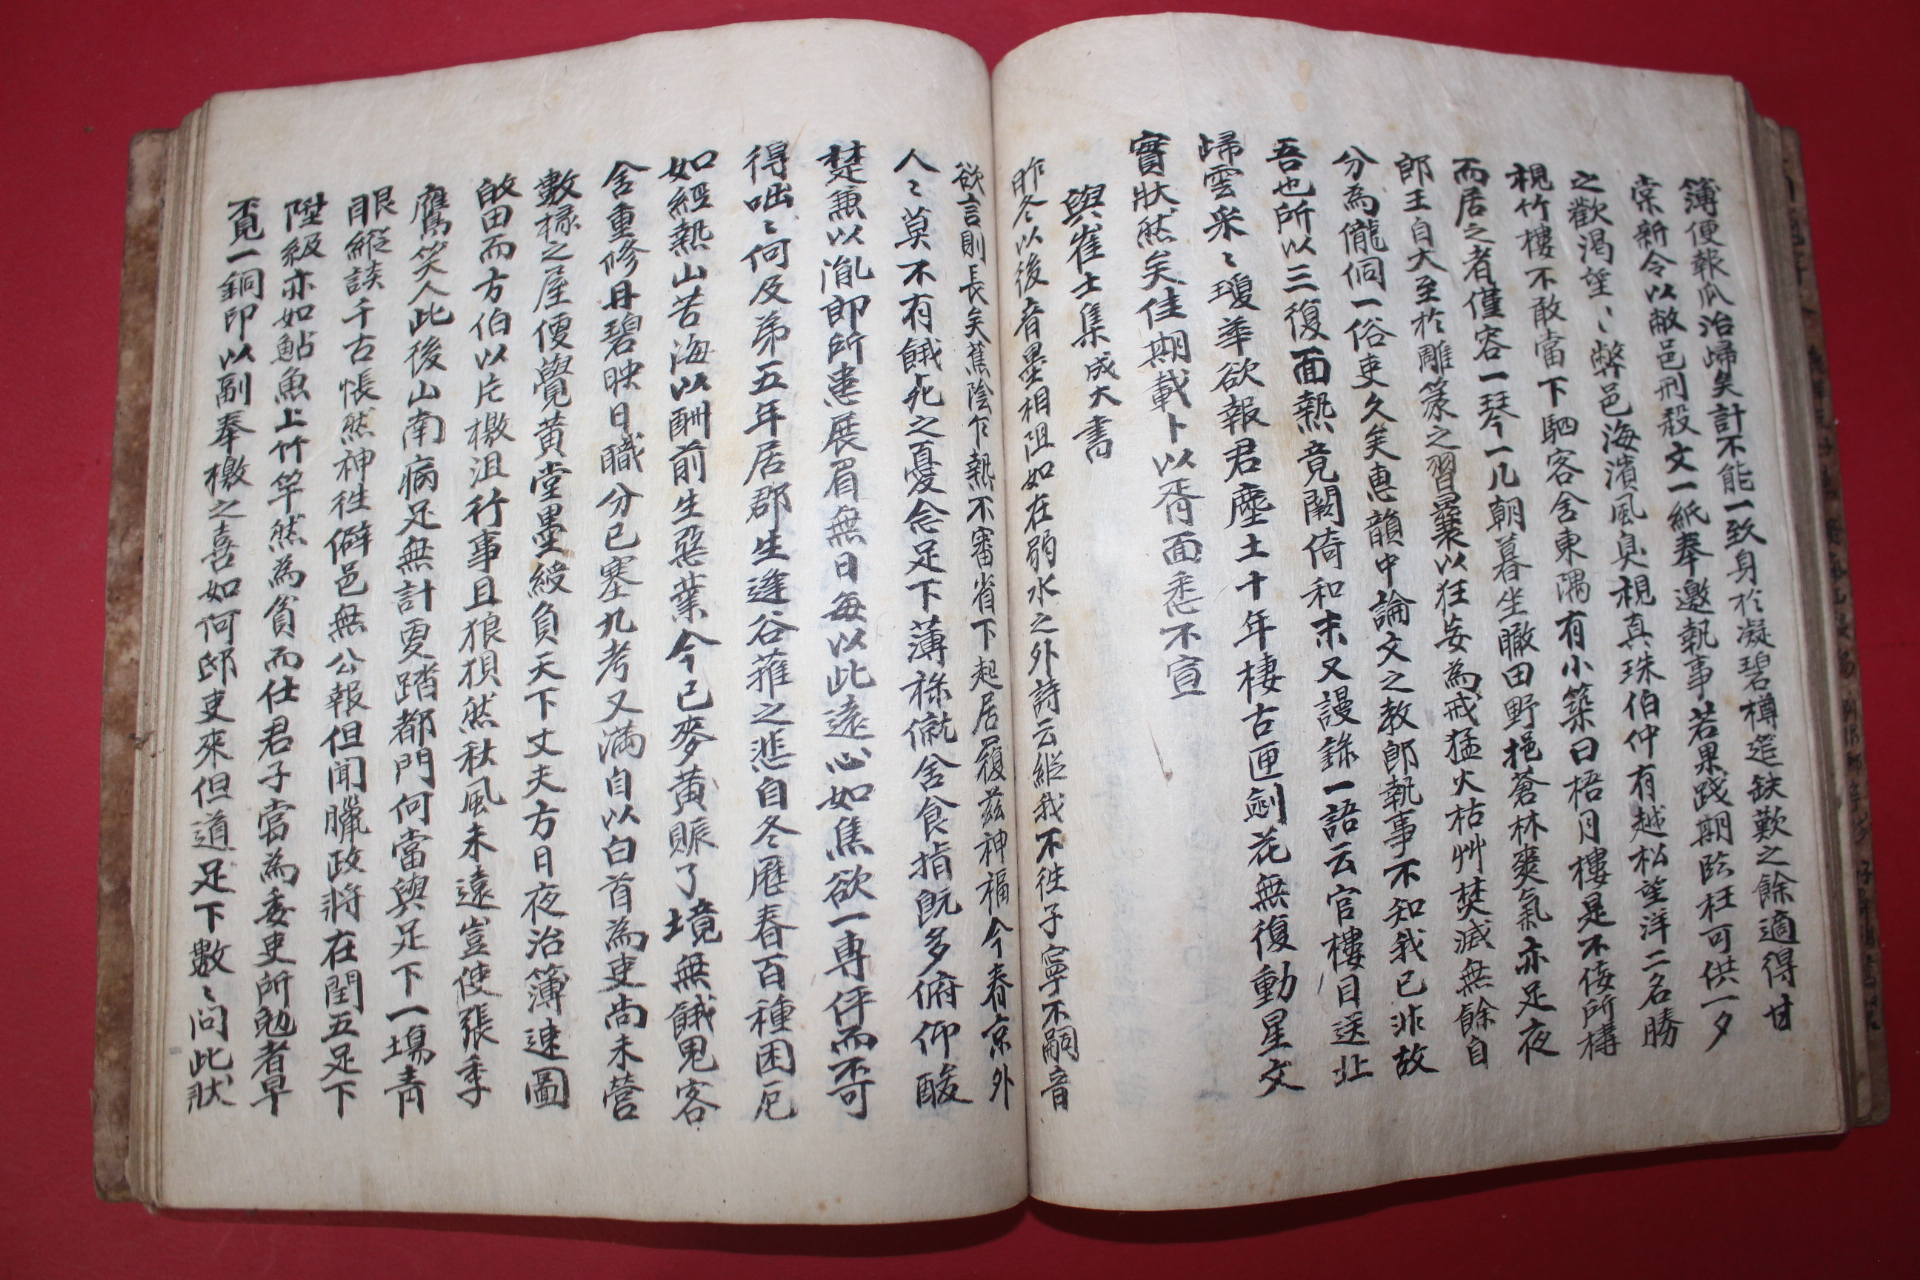 簿便報瓜治歸矣計不能一致身於凝碧樽筵缺歎之餘適得甘
棠新令以敝邑刑殺文一紙奉邀執事若果踐期臨枉可供一夕
之歡渴望〻弊邑海濱風臭視真珠伯仲有越松望洋二名勝
視竹樓不敢當下駟客舍東隅有小築曰梧月樓是不佞所構
而居之者僅容一琴一几朝暮坐瞰田野挹蒼林爽氣亦足夜
郎王自大至於雕篆之習曩以狂妄為戒猛火枯艸焚滅無餘自
分為儱侗一俗吏久矣惠韻中論文之教郎執事不知我已非故
吾也所以三復面熱竟闕倚和末又謾錄一語云官樓目送北
歸雲采〻瓊華欲報君塵土十年棲古匣劍花無復動星文
實狀然矣佳期載卜以胥面悉不宣
與崔士集成大書
昨冬以後音墨相阻如在弱水之外詩云縱我不徃子寧不嗣音
欲言則長矣蕉陰乍熱不審省下起居履玆神福今春京外
人〻莫不有餓死之憂念足下薄祿僦舍食指旣多俯仰酸
楚兼以胤郎所患展眉無日每以此遠心如焦欲一專伻而不可
得咄〻何及弟五年居郡生逢谷蓷之悲自冬歷春百種困厄
如經熱山苦海以酬前生惡業今已麥黃賑了境無餓鬼客
舍重修丹碧映日職分已塞九考又滿自以白首為吏尚未營
數椽之屋便覺黃堂墨綬負天下丈夫方日夜治簿速圖
啟田而方伯以片檄沮行事且狼狽然秋風未遠豈使張季
鷹笑人此後山南病足無計更踏都門何當與足下一場靑
眼縱談千古悵然神徃僻邑無公報但聞臘政將在閏五足下
陞級亦如鮎魚上竹竿然為貧而仕君子當為委吏所勉者早
覓一銅印以副奉檄之喜如何邸吏來但道足下數〻問此狀